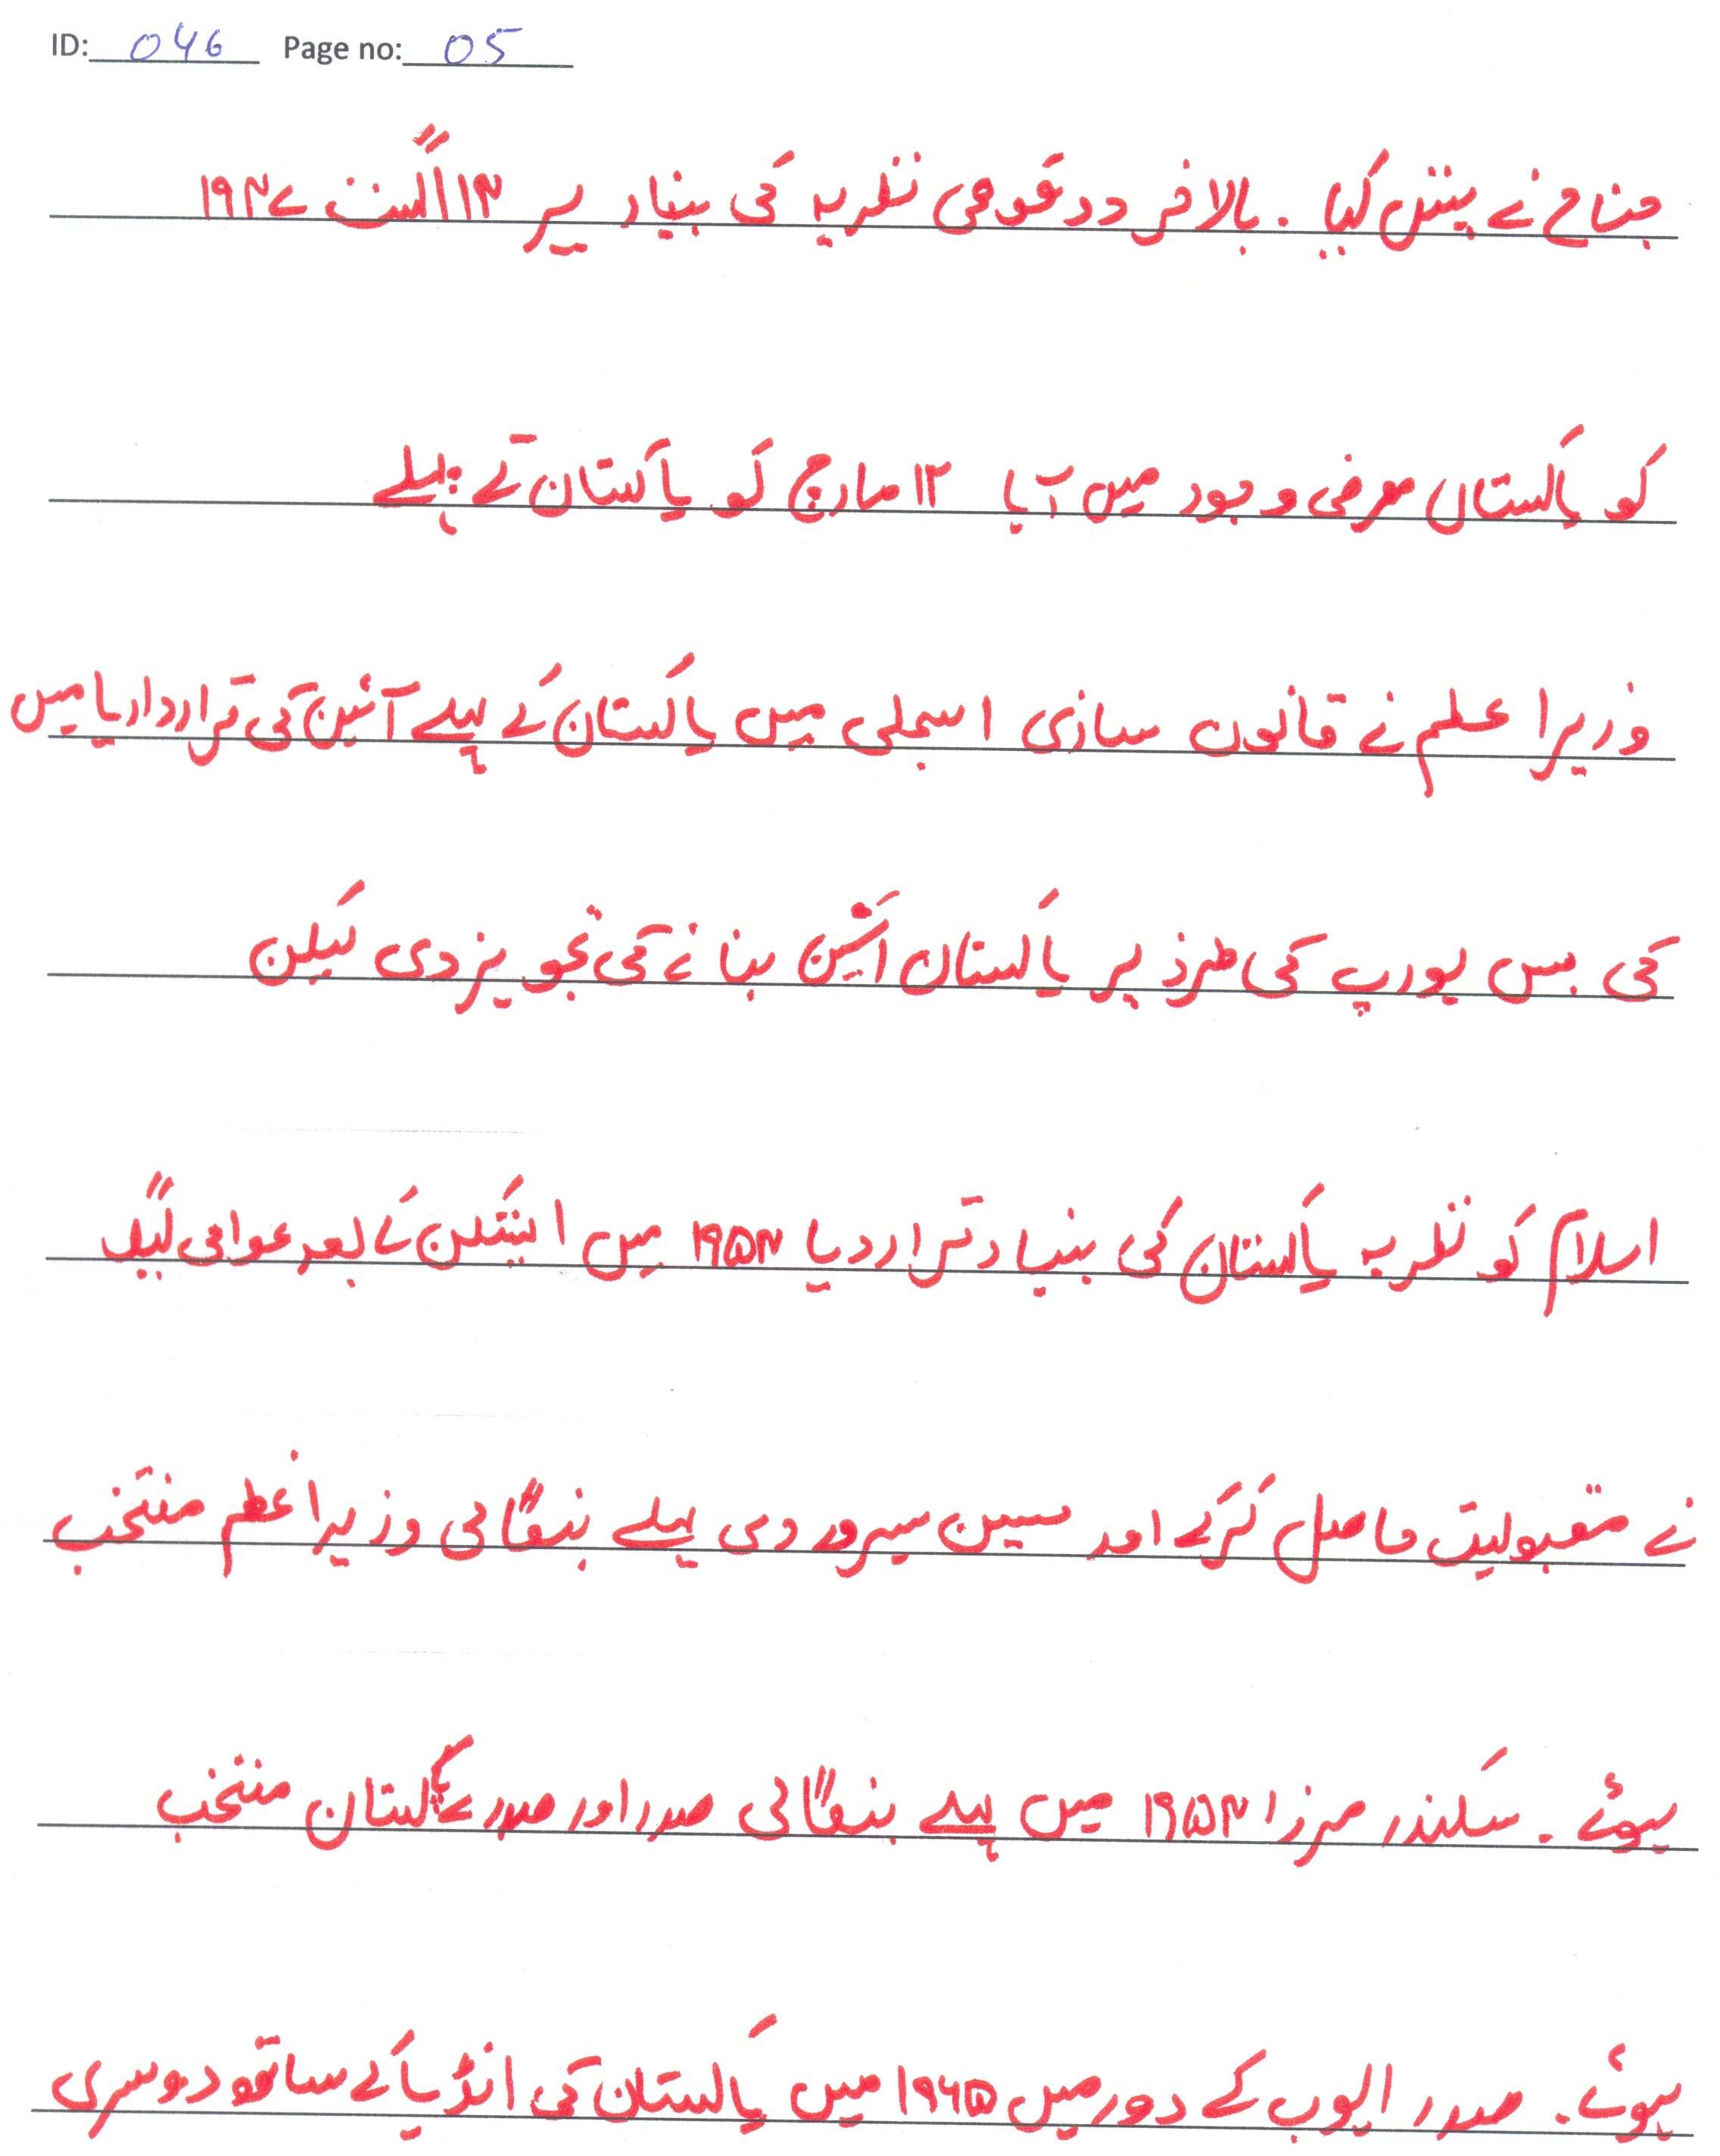 ID: 046 Page no: 05
جناح نے پیش کیا ۔ بالاخر دو قومی نظریہ کی بنیاد پر ۱۴ اگست ۱۹۴۷
کو پاکستان معرض وجود میں آیا ۱۲ مارچ کو پاکستان کے پہلے
وزیرا عظم نے قانون سازی اسمبلی میں پاکستان کے پہلے آئین کی قرارداد پامیں
کی بس یورپ کی طرز پر پاکستان آئین بنانے کی تجویز دی لیکن
اسلام کو نظریہ پاکستان کی بنیاد قرار دیا ۱۹۵۴ میں الیکشن کے بعد عوامی لیگ
نے مقبولیت حاصل کرکے اور حسین سہروردی پہلے بنگالی وزیراعظم منتخب
ہوئے ۔ سکندر مرزا ۱۹۵۴ میں پہلے بنگالی صدر اور صدر پاکستان منتخب
ہوئے ۔ صدر ایوب کے دور میں ۱۹۶۵ میں پاکستان کی انڈیا کے ساتھ دوسری